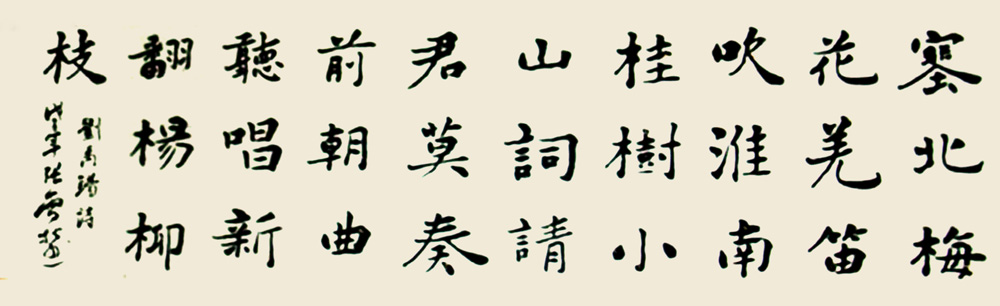 塞北梅
花羌笛
吹淮南
桂樹小
山詞請
君莫奏
前朝曲
聽唱新
翻楊柳
枝
劉禹錫詩